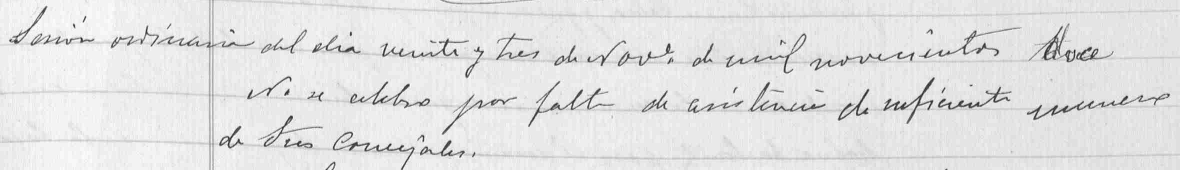 Sesión ordinaria del dia veinte y tres de Nove. de mil novecientos doce
No se celebro por falta de asistencia de suficiente numero
de Sres Concejales.